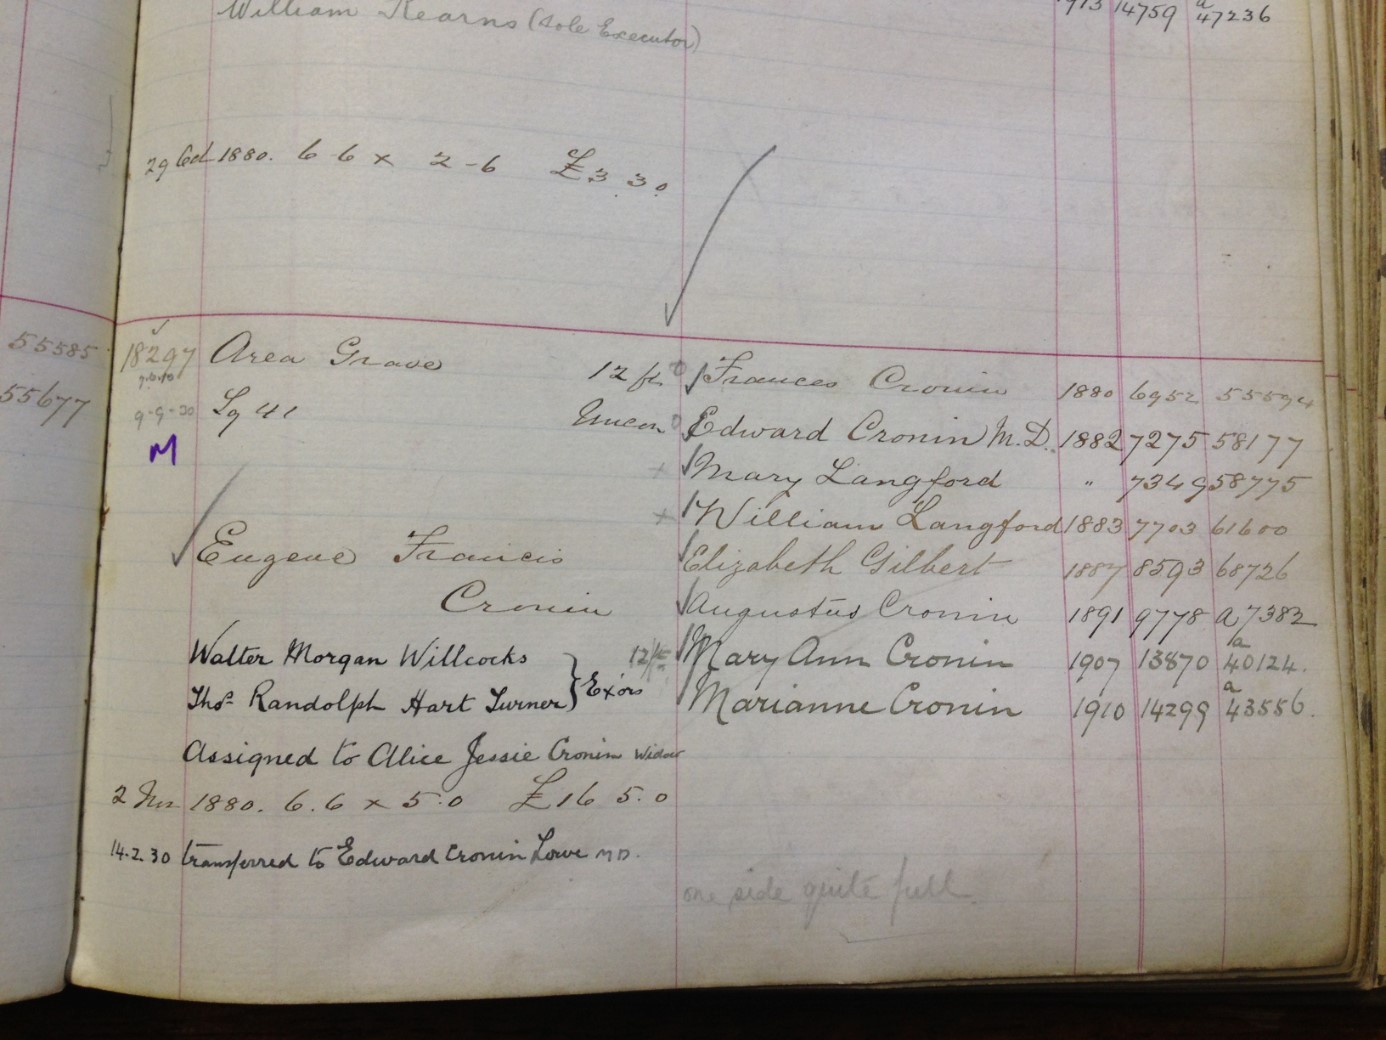 William Kearns (Sole Executor) 1913 14759 a 47236
29 Oct 1880. 6 6 x 2-6 £3 3 0
55585 18297 Area Grave 12 ft Frances Cronin 1880 6952 55594
55677 9-9-30 Sq 41 Edward Cronin M.D. 1882 7275 58177
M Mary Langford " 7349 58775
William Langford 1883 7703 61600
Eugene Francis Elizabeth Gilbert 1887 8593 68726
Cronin Augustus Cronin 1891 9778 a 7382
Walter Morgan Willcocks 12 ft Mary Ann Cronin 1907 13870 a 40124.
Thos Randolph Hart Turner } Exors Marianne Cronin 1910 14299 a 43556.
Assigned to Alice Jessie Cronin Widow
2 Nov 1880. 6.6 x 5.0 £16 5.0
14.2.30 transferred to Edward Cronin Lowe MD.
one side quite full